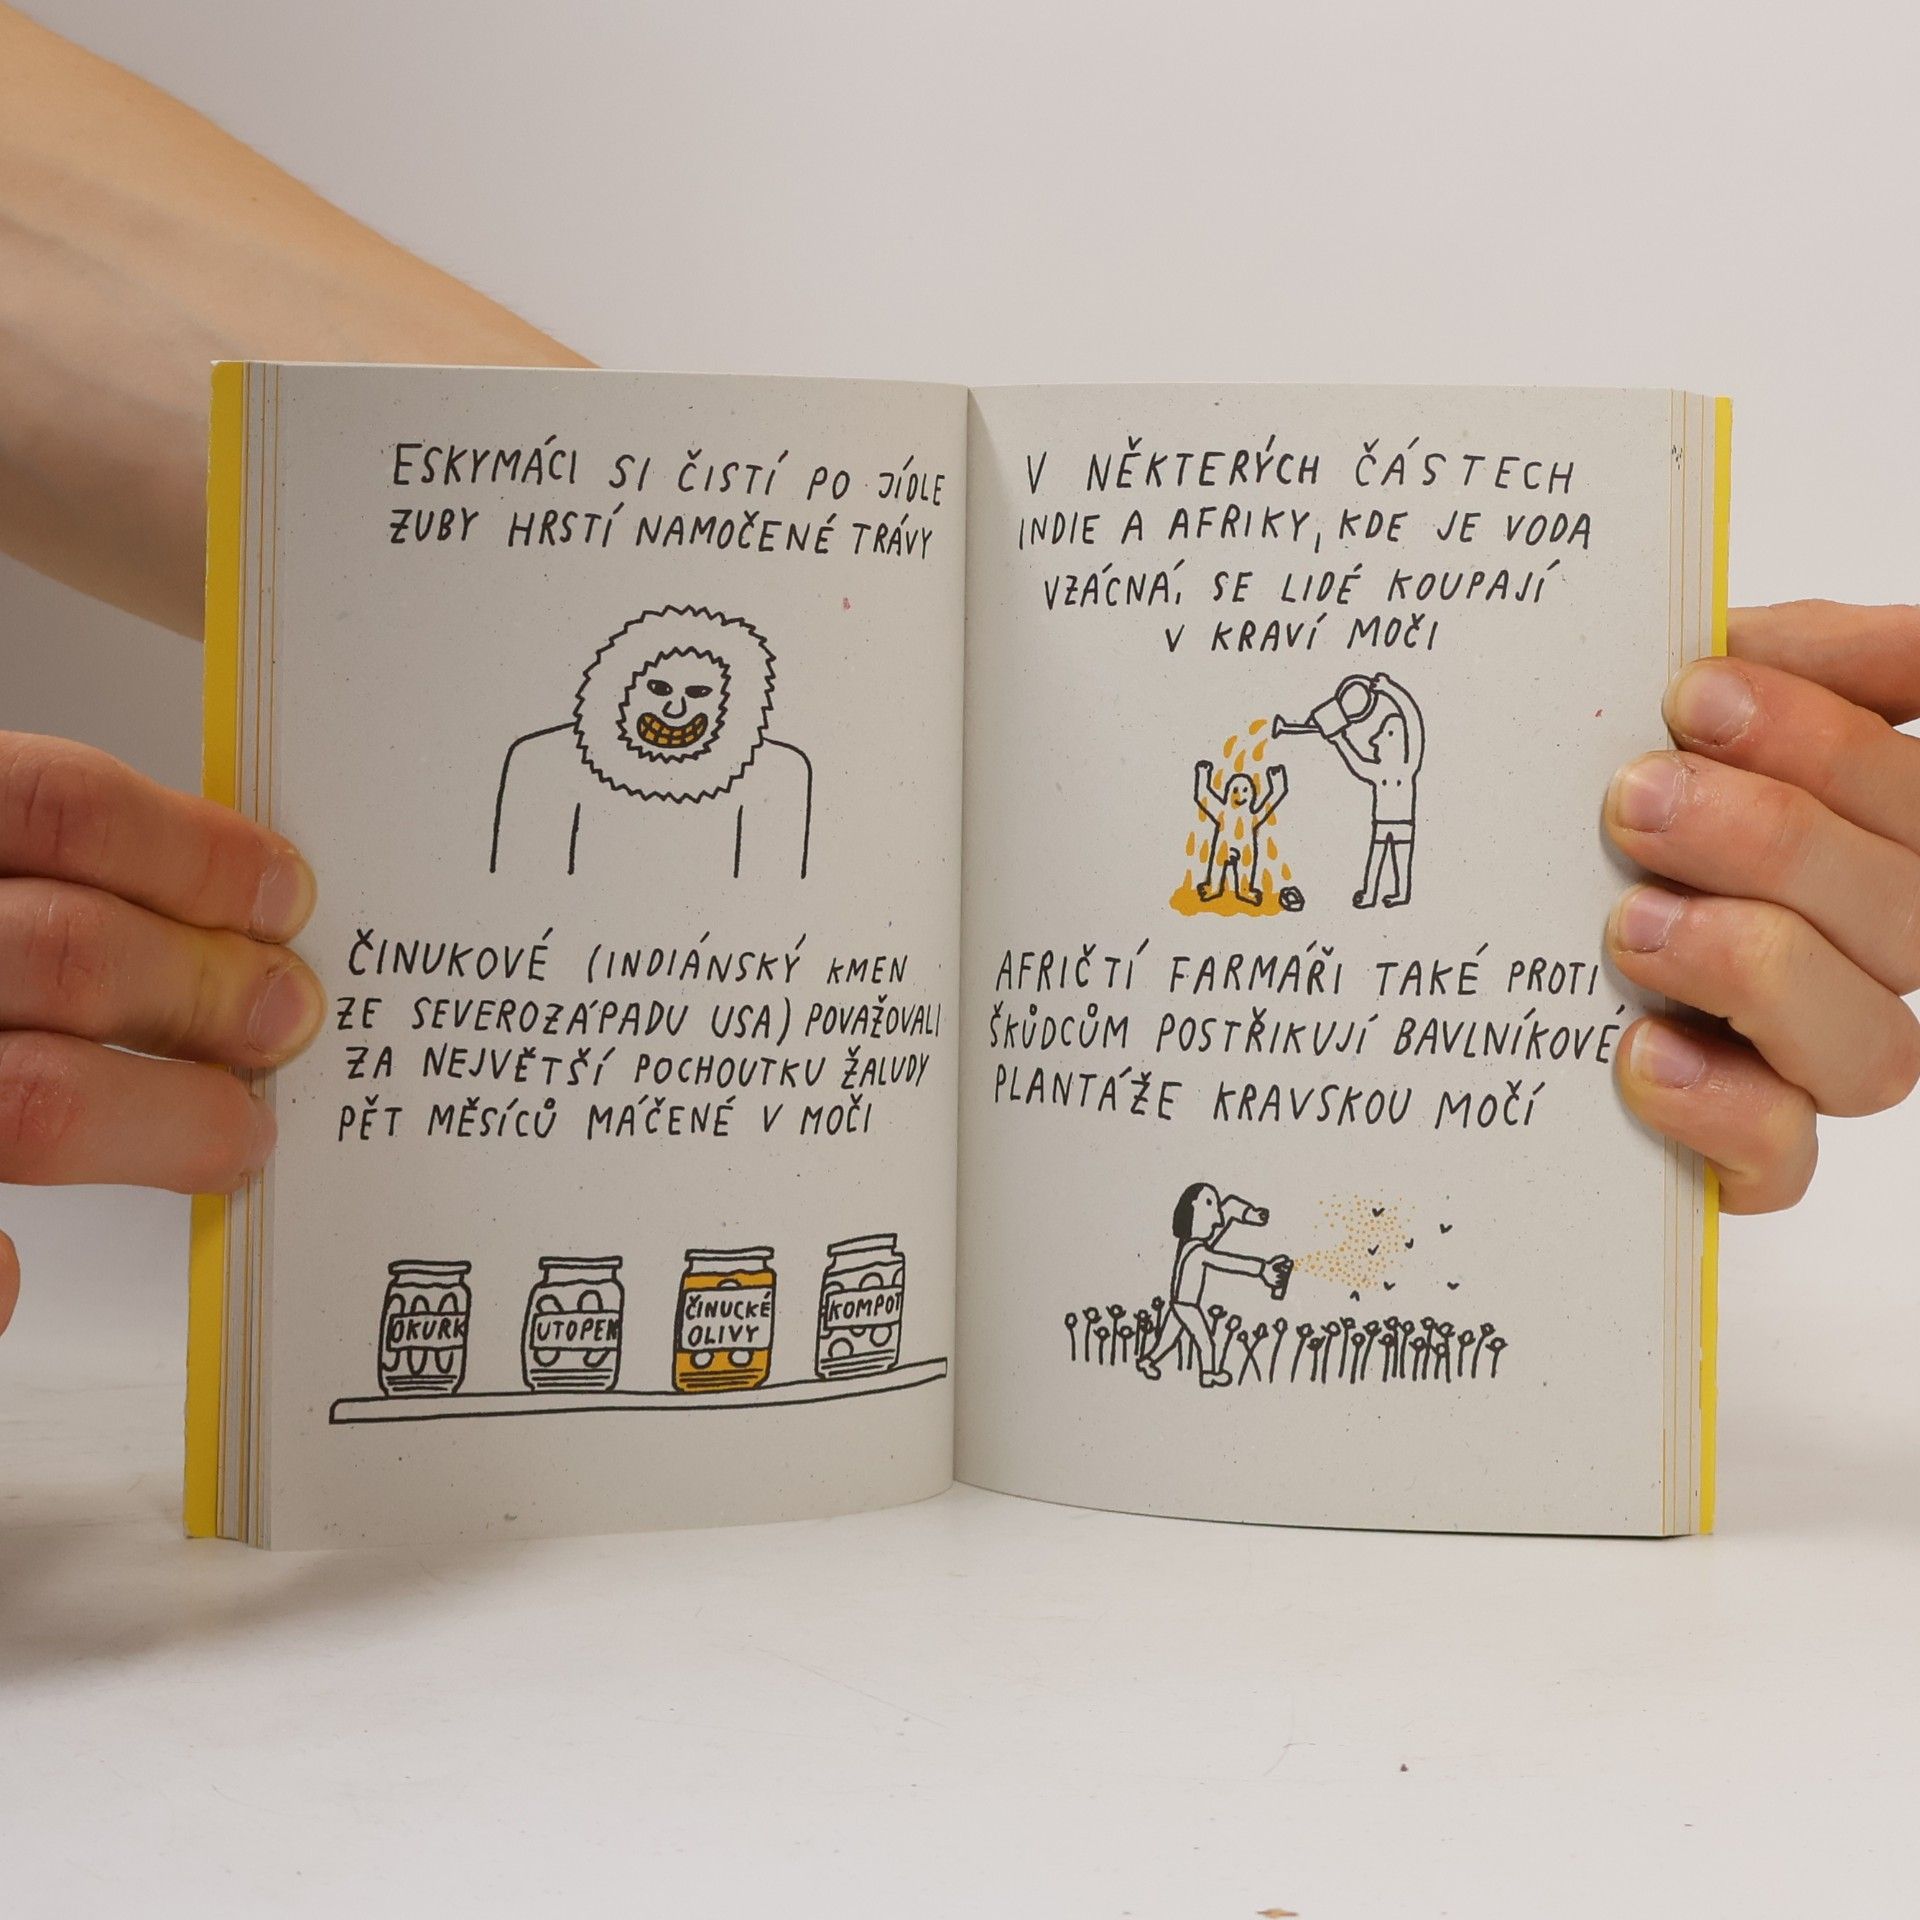 ESKYMÁCI SI ČISTÍ PO JÍDLE
ZUBY HRSTÍ NAMOČENÉ TRÁVY
ČINUKOVÉ (INDIÁNSKÝ KMEN
ZE SEVEROZÁPADU USA) POVAŽOVALI
ZA NEJVĚTŠÍ POCHOUTKU ŽALUDY
PĚT MĚSÍCŮ MÁČENÉ V MOČI
OKURK
UTOPEN
ČINUCKÉ
OLIVY
KOMPOT
V NĚKTERÝCH ČÁSTECH
INDIE A AFRIKY, KDE JE VODA
VZÁCNÁ, SE LIDÉ KOUPAJÍ
V KRAVÍ MOČI
AFRIČTÍ FARMÁŘI TAKÉ PROTI
ŠKŮDCŮM POSTŘIKUJÍ BAVLNÍKOVÉ
PLANTÁŽE KRAVSKOU MOČÍ